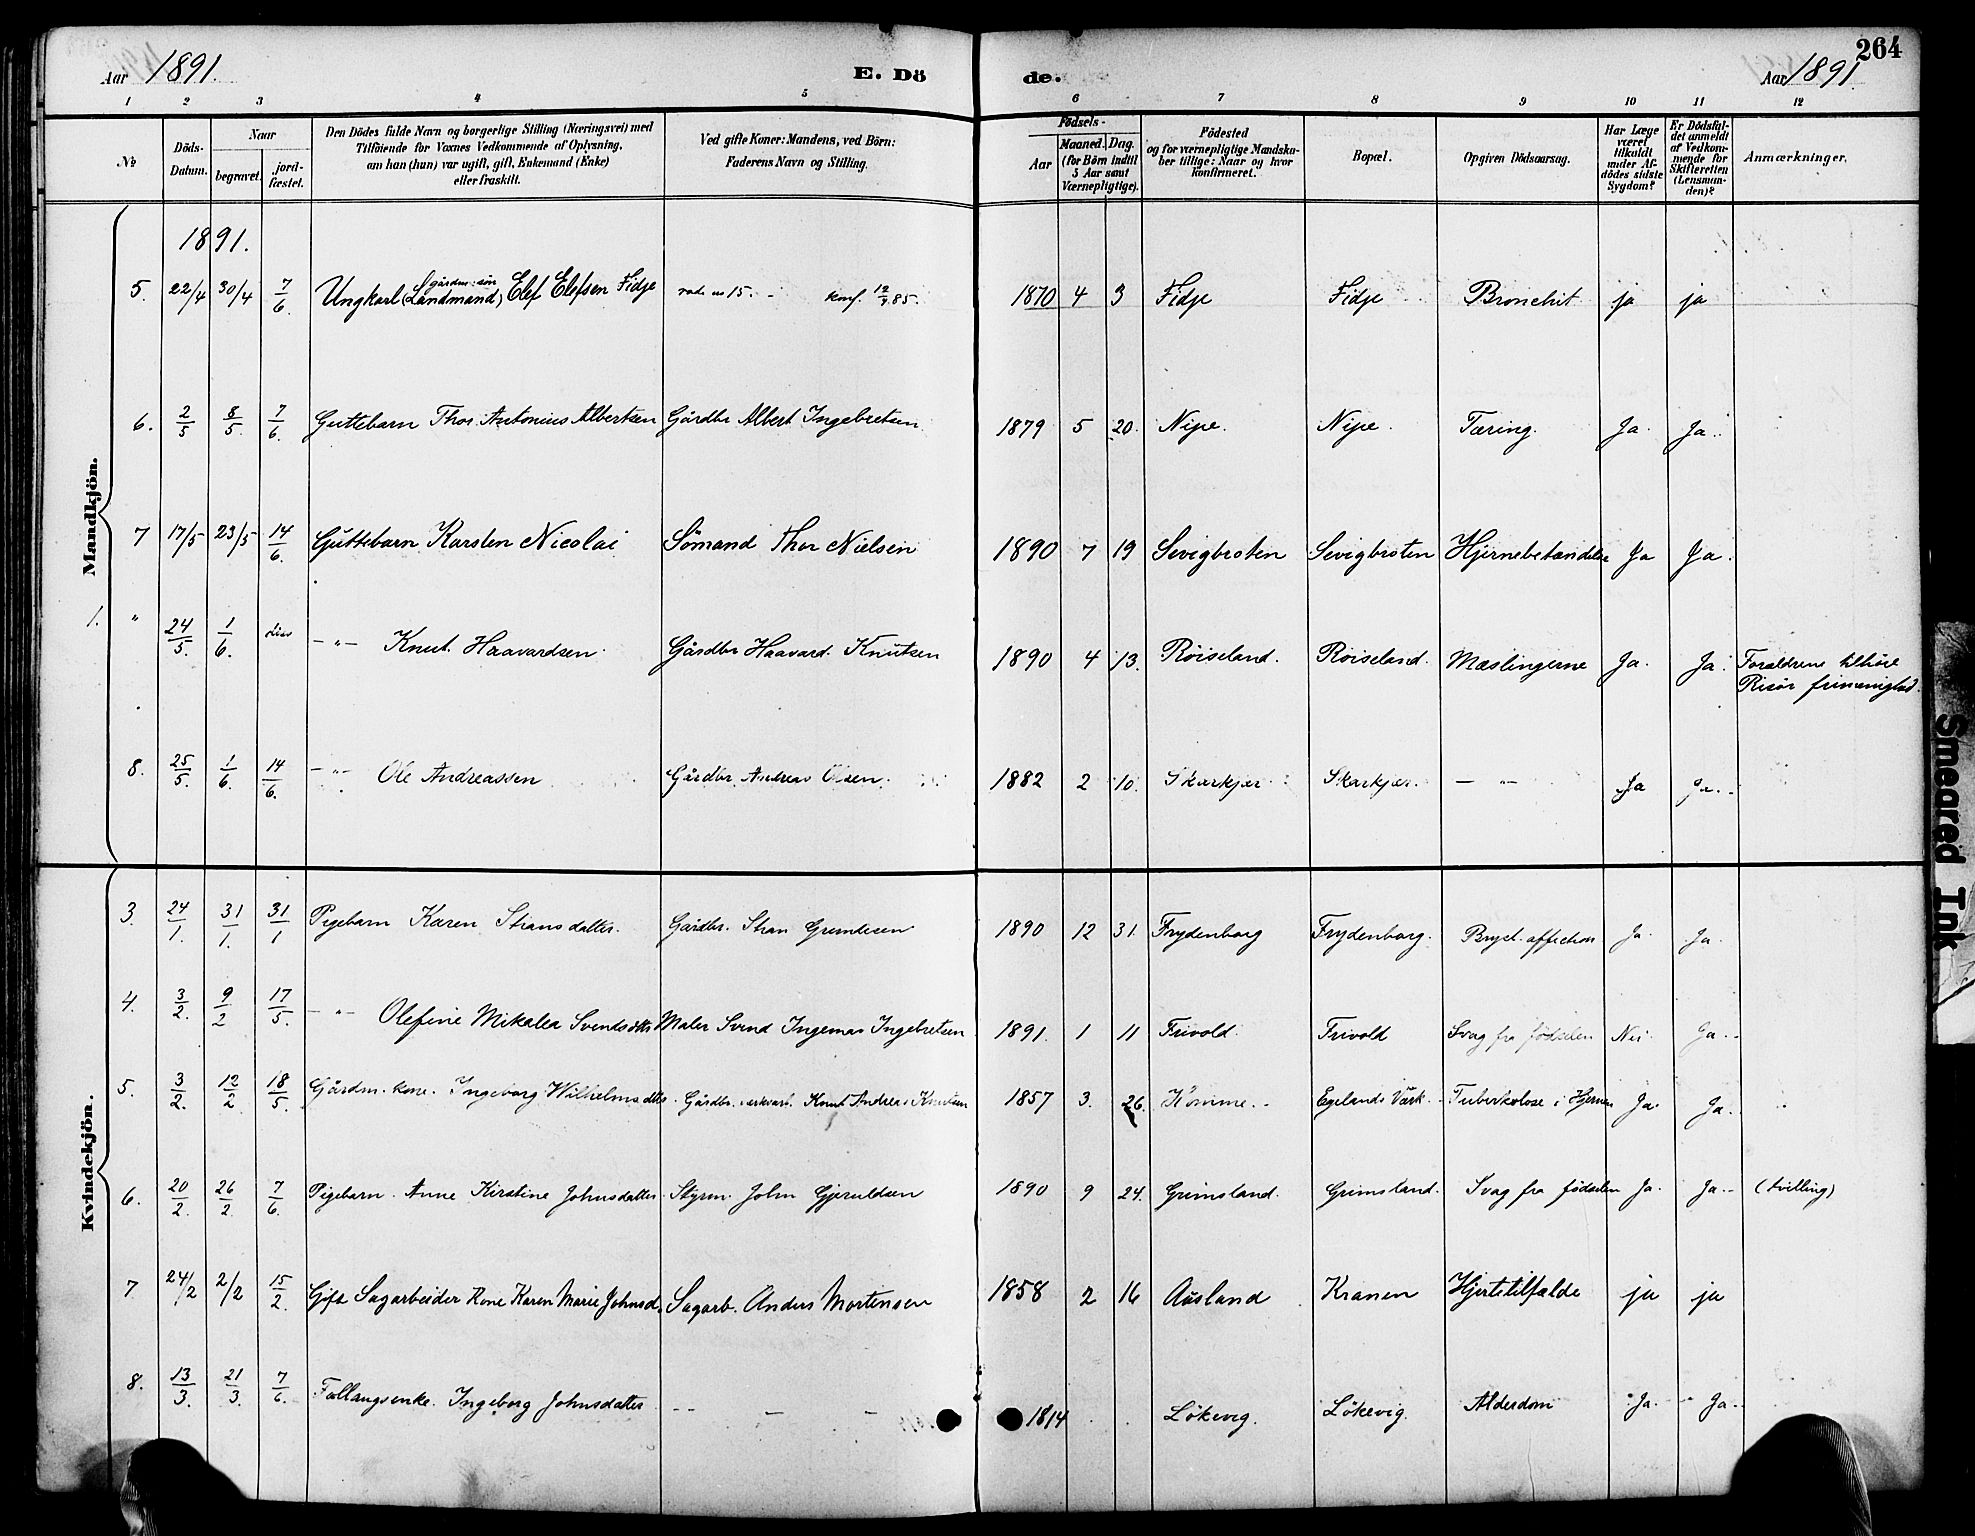 264
Aar 1891. E. Dö de. Aar 1891.
1 2 3 4 5 6 7 8 9 10 11 12
№
Döds-Datum.
Naar
begravet.
jord-fæstet.
Den Dödes fulde Navn og borgerlige Stilling (Næringsvei) med
Tilföiende for Voxnes Vedkommende af Oplysning,
om han (hun) var ugift, gift, Enkemand (Enke)
eller fraskilt.
Ved gifte Koner: Mandens, ved Börn:
Faderens Navn og Stilling.
Födsels-
Aar
Maaned. Dag.
(for Börn indtil
5 Aar samt
Værnepligtige).
Födested
og for værnepligtige Mandskaber tillige: Naar og hvor
Konfirmeret.
Bopæl.
Opgiven Dödsaarsag.
Har Læge
været
tilkaldt
under Afdödes sidste
Sygdom?
Er Dödsfaldet anmeldt
af Vedkommende for
Skifteretten
(Lensmanden)?
Anmærkninger.
Mandkjön.
1891.
5. 22/4 30/4 7/6. Ungkarl (Landmand) gårdm: søn Elef Elefsen Fidje konf. 85. 1870 4 3 Fidje Fidje Bronchit ja ja
6. 2/5 8/5. 7/6. Guttebarn Thos. Antonius Albertsen Gårdbr Albert Ingebretsen 1879 5 20. Nipe. Nipe. Tæring. Ja. Ja.
7 17/5 23/5 14/6. Guttebarn Karsten Nicolai Sömand Thor Nielsen 1890 7 19 Sevigbroten Sevigbroten Hjernebetændelse Ja Ja.
1. " 24/5. 1/6. diss — " — Knut Haavardsen. Gårdbr Haavard Knutsen 1890 4 13. Röiseland. Röiseland. Mæslingerne Ja. Ja. Forældrene tilhöre
Risör frimenighed.
8. 25/5. 1/6. 14/6. — " — Ole Andreassen Gårdbr. Andreas Olsen. 1882 2 10. Skarkjær Skarkjær. — " — Ja Ja.
Kvindekjön.
3. 24/1. 31/1. 31/1 Pigebarn Karen Stransdatter. Gårdbr. Stran Grundesen 1890 12 31. Frydenborg Frydenborg. Bryst. affection Ja. Ja.
4. 3/2. 9/2 17/5. — " — Olefine Mikalea Svendsdtr Maler Svend Ingemar Ingebretsen 1891. 1 11 Frivold. Frivold Svag fra födselen Nei. Ja.
5. 3/2. 12/2 18/5. Gårdm. kone. Ingeborg Wilhelmsdtr. Gårdbr. Knut Andreas Knutsen 1857 3. 26. Komme. Egelands Værk. Tuberkulose i Hjernen Ja. Ja.
6. 20/2. 26/2. 7/6. Pigebarn. Anne Kirstine Johnsdatter. Styrm. John Gjeruldsen 1890 9 24. Grimsland. Grimsland. Svag fra födselen Ja. Ja. (tvilling)
7 24/2 2/2 15/2. Gift Sagarbeider Kone Karen Marie Johnsd. Sagarb. Anders Mortensen 1858 2 16 Aasland Kranen Hjertetilfælde ja ja
8. 13/3. 21/3. 7/6. Follaugsenke. Ingeborg Johnsdatter — — — 1814 Lökevig. Lökevig. Alderdom Ja. Ja.
Smeared Ink